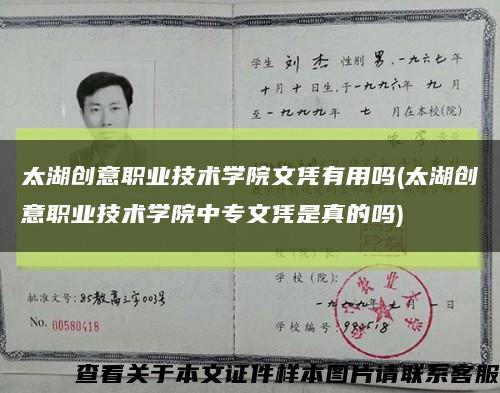 学生 刘杰 性别 男,一九六七年
十月十日生,于一九九六年 九月
至一九九九年 七 月在本校(院)
农学 专业
太湖创意职业技术学院文凭有用吗(太湖创
意职业技术学院中专文凭是真的吗)
校(院)长:
学 校(院):
一九九九年七月一日
批准文号:85教高三字003号
No. 00580418
学校编号:990518
查看关于本文证件样本图片请联系客服